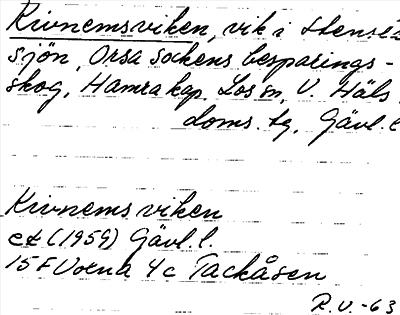 Kivnemsviken, vik i Stensét
sjön, Orsa sockens besparings-
skog, Hamra kap. Los sn, V. Häls.
doms. tg, Gävl. l
Kivnemsviken
ek (1959) Gävl. l.
15 F Voxna 4c Tackåsen
R.V. -63